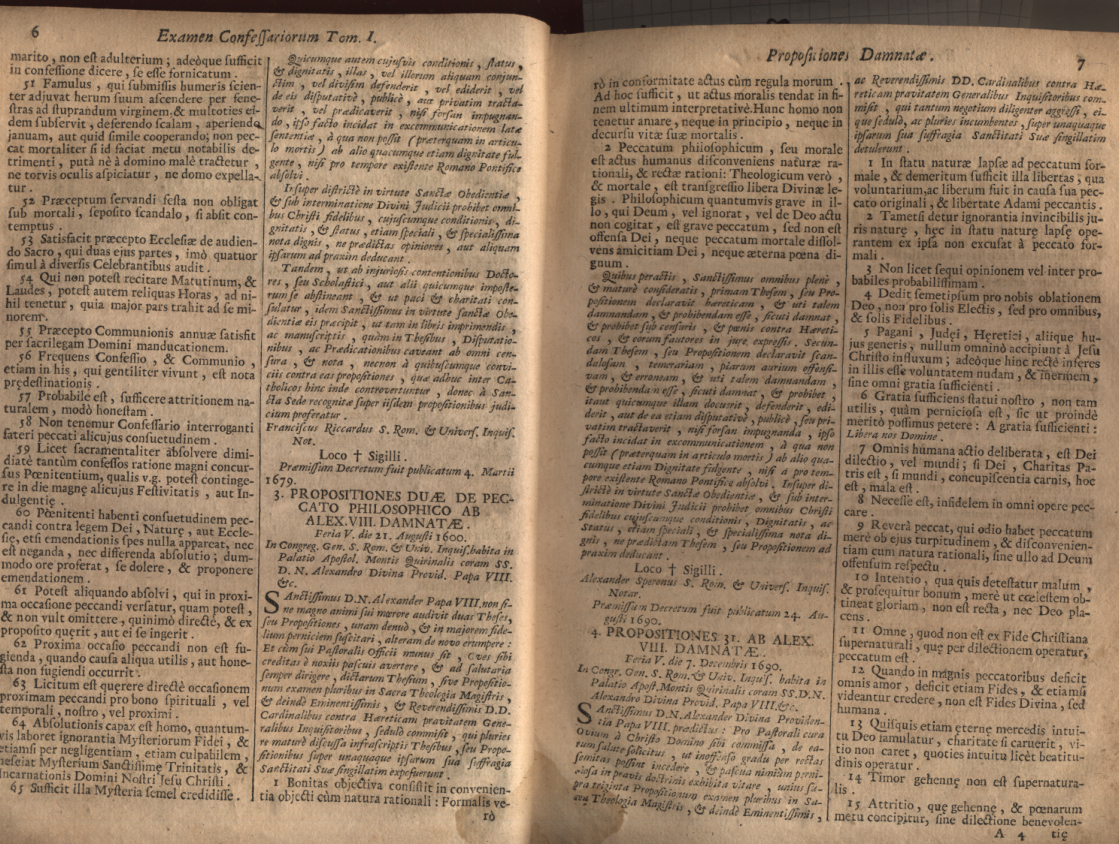 6
Examen Confessariorum Tom. I.
marito, non est adulterium; adeòque sufficit
in confessione dicere, se esse fornicatum.
51 Famulus, qui submissis humeris scien-
ter adjuvat herum suum ascendere per fene-
stras ad stuprandum virginem, & multoties ei-
dem subservit, deferendo scalam, aperiendo
januam, aut quid simile cooperando; non pec-
cat mortaliter si id faciat metu notabilis de-
trimenti, putà nè à domino malè tractetur,
ne torvis oculis aspiciatur, ne domo expella-
tur.
52 Præceptum servandi festa non obligat
sub mortali, seposito scandalo, si absit con-
temptus.
53 Satisfacit præcepto Ecclesiæ de audien-
do Sacro, qui duas ejus partes, imò quatuor
simul à diversis Celebrantibus audit.
54 Qui non potest recitare Matutinum, &
Laudes, potest autem reliquas Horas, ad ni-
hil tenetur, quia major pars trahit ad se mi-
norem.
55 Præcepto Communionis annuæ satisfit
per sacrilegam Domini manducationem.
56 Frequens Confessio, & Communio,
etiam in his, qui gentiliter vivunt, est nota
prędestinationis.
57 Probabile est, sufficere attritionem na-
turalem, modò honestam.
58 Non tenemur Confessario interroganti
fateri peccati alicujus consuetudinem.
59 Licet sacramentaliter absolvere dimi-
diatè tantùm confessos ratione magni concur-
sus Pœnitentium, qualis v.g. potest continge-
re in die magnę alicujus Festivitatis, aut In-
dulgentię.
60 Pœnitenti habenti consuetudinem pec-
candi contra legem Dei, Naturę, aut Eccle-
się, etsi emendationis spes nulla appareat, nec
est neganda, nec differenda absolutio; dum-
modo ore proferat, se dolere, & proponere
emendationem.
61 Potest aliquando absolvi, qui in proxi-
ma occasione peccandi versatur, quam potest,
& non vult omittere, quinimò directè, & ex
proposito quęrit, aut ei se ingerit.
62 Proxima occasio peccandi non est fu-
gienda, quando causa aliqua utilis, aut hone-
sta non fugiendi occurrit.
63 Licitum est quęrere directè occasionem
proximam peccandi pro bono spirituali, vel
temporali, nostro, vel proximi.
64 Absolutionis capax est homo, quantum-
vis laboret ignorantia Mysteriorum Fidei, &
etiamsi per negligentiam, etiam culpabilem,
nesciat Mysterium Sanctissimę Trinitatis, &
Incarnationis Domini Nostri Jesu Christi.
65 Sufficit illa Mysteria semel credidisse.
Quicumque autem cujusvis conditionis, status,
& dignitatis, illas, vel illarum aliquam conjun-
ctim, vel divisim defenderit, vel ediderit, vel
de eis disputativè, publicè, aut privatim tracta-
verit, vel prædicaverit, nisi forsan impugnan-
do, ipso facto incidat in excommunicationem latæ
sententiæ, à qua non possit (præterquam in articu-
lo mortis) ab alio quacumque etiam dignitate ful-
gente, nisi pro tempore existente Romano Pontifice
absolvi.
Insuper districtè in virtute Sanctæ Obedientiæ,
& sub interminatione Divini Judicii prohibet omni-
bus Christi fidelibus, cujuscumque conditionis, di-
gnitatis, & status, etiam speciali, & specialissima
nota dignis, ne prædictas opiniones, aut aliquam
ipsarum ad praxim deducant.
Tandem, ut ab injuriosis contentionibus Docto-
res, seu Scholastici, aut alii quicumque imposte-
rum se abstineant, & ut paci & charitati con-
sulatur, idem Sanctissimus in virtute sanctæ Obe-
dientiæ eis præcipit, ut tam in libris imprimendis,
ac manuscriptis, quàm in Thesibus, Disputatio-
nibus, ac Prædicationibus caveant ab omni cen-
sura, & nota, necnon à quibuscumque convi-
ciis contra eas propositiones, quæ adhuc inter Ca-
tholicos hinc inde controvertuntur, donec à San-
cta Sede recognitæ super iisdem propositionibus judi-
cium proferatur.
Franciscus Riccardus S. Rom. & Univers. Inquis.
Not.
Loco † Sigilli.
Præmissum Decretum fuit publicatum 4. Martii
1679.
3. PROPOSITIONES DUÆ DE PEC-
CATO PHILOSOPHICO AB
ALEX.VIII. DAMNATÆ.
Feria V. die 21. Augusti 1600.
In Congreg. Gen. S. Rom. & Univ. Inquis. habita in
Palatio Apostol. Montis Quirinalis coram SS.
D. N. Alexandro Divina Provid. Papa VIII.
&c.
SAnctissimus D.N. Alexander Papa VIII. non si-
ne magno animi sui mœrore audivit duas Theses,
seu Propositiones, unam denuò, & in majorem fide-
lium perniciem suscitari, alteram de novo erumpere:
Et cùm sui Pastoralis Officii munus sit, Oves sibi
creditas à noxiis pascuis avertere, & ad salutaria
semper dirigere, dictarum Thesium, sive Propositio-
num examen pluribus in Sacra Theologia Magistris,
& deindè Eminentissimis, & Reverendissimis D.D.
Cardinalibus contra Hæreticam pravitatem Gene-
ralibus Inquisitoribus, sedulò commisit, qui pluries
re maturè discussa infrascriptis Thesibus, seu Propo-
sitionibus super unaquaque ipsarum sua suffragia
Sanctitati Suæ singillatim exposuerunt.
1 Bonitas objectiva consistit in convenien-
tia objecti cùm natura rationali: Formalis ve-
rò
Propositiones Damnatæ.
7
rò in conformitate actus cùm regula morum.
Ad hoc sufficit, ut actus moralis tendat in fi-
nem ultimum interpretativè. Hunc homo non
tenetur amare, neque in principio, neque in
decursu vitæ suæ mortalis.
2 Peccatum philosophicum, seu morale
est actus humanus disconveniens naturæ ra-
tionali, & rectæ rationi: Theologicum verò,
& mortale, est transgressio libera Divinæ le-
gis. Philosophicum quantumvis grave in il-
lo, qui Deum, vel ignorat, vel de Deo actu
non cogitat, est grave peccatum, sed non est
offensa Dei, neque peccatum mortale dissol-
vens amicitiam Dei, neque æterna pœna di-
gnum.
Quibus peractis, Sanctissimus omnibus plenè,
& maturè consideratis, primam Thesem, seu Pro-
positionem declaravit hæreticam, & uti talem
damnandam, & prohibendam esse, sicuti damnat,
& prohibet sub censuris, & pœnis contra Hæreti-
cos, & eorum fautores in jure expressis. Secun-
dam Thesem, seu Propositionem declaravit scan-
dalosam, temerariam, piarum aurium offensi-
vam, & erroneam, & uti talem damnandam,
& prohibendam esse, sicuti damnat, & prohibet,
itaut quicumque illam docuerit, defenderit, edi-
derit, aut de ea etiam disputativè, publicè, seu pri-
vatim tractaverit, nisi forsan impugnanda, ipso
facto incidat in excommunicationem, à qua non
possit (præterquam in articulo mortis) ab alio qua-
cumque etiam Dignitate fulgente, nisi a pro tem-
pore existente Romano Pontifice absolvi. Insuper di-
strictè in virtute Sanctæ Obedientiæ, & sub inter-
minatione Divini Judicii prohibet omnibus Christi
fidelibus cujuscumque conditionis, Dignitatis, ac
Status, etiam speciali, & specialissima nota di-
gnis, ne prædictam Thesem, seu Propositionem ad
praxim deducant.
Loco † Sigilli.
Alexander Speronus S. Rom. & Univers. Inquis.
Notar.
Præmissum Decretum fuit publicatum 24. Au-
gusti 1690.
4. PROPOSITIONES 31. AB ALEX.
VIII. DAMNATÆ.
Feria V. die 7. Decembris 1690.
In Congr. Gen. S. Rom. & Univ. Inquis. habita in
Palatio Apost. Montis Quirinalis coram SS.D.N.
Alexandro Divina Provid. Papa VIII.&c.
SAnctissimus D.N. Alexander Divina Providen-
tia Papa VIII. prædictus: Pro Pastorali cura
Ovium à Christo Domino sibi commissa, de ea-
rum salute solicitus, ut inoffenso gradu per rectas
semitas possint incedere, & pascua nimiùm perni-
ciosa in pravis doctrinis exhibita vitare, unius su-
pra triginta Propositionum examen pluribus in Sa-
cra Theologia Magistris, & deindè Eminentissimis,
ac Reverendissimis DD. Cardinalibus contra Hæ-
reticam pravitatem Generalibus Inquisitoribus com-
misit, qui tantum negotium diligenter aggressi, ei-
que sedulò, ac pluries incumbentes, super unaquaque
ipsarum sua suffragia Sanctitati Suæ singillatim
detulerunt.
1 In statu naturæ lapsæ ad peccatum for-
male, & demeritum sufficit illa libertas; qua
voluntarium, ac liberum fuit in causa sua pec-
cato originali, & libertate Adami peccantis.
2 Tametsi detur ignorantia invincibilis ju-
ris naturę, hęc in statu naturę lapsę ope-
rantem ex ipsa non excusat à peccato for-
mali.
3 Non licet sequi opinionem vel inter pro-
babiles probabilissimam.
4 Dedit semetipsum pro nobis oblationem
Deo, non pro solis Electis, sed pro omnibus,
& solis Fidelibus.
5 Pagani, Judęi, Hęretici, aliique hu-
jus generis, nullum omninò accipiunt à Jesu
Christo influxum; adeòque hinc rectè inferes
in illis esse voluntatem nudam, & inermem,
sine omni gratia sufficienti.
6 Gratia sufficiens statui nostro, non tam
utilis, quàm perniciosa est, sic ut proindè
meritò possimus petere: A gratia sufficienti:
Libera nos Domine.
7 Omnis humana actio deliberata, est Dei
dilectio, vel mundi; si Dei, Charitas Pa-
tris est, si mundi, concupiscentia carnis, hoc
est, mala est.
8 Necesse est, infidelem in omni opere pec-
care.
9 Reverà peccat, qui odio habet peccatum
merè ob ejus turpitudinem, & disconvenien-
tiam cum natura rationali, sine ullo ad Deum
offensum respectu.
10 Intentio, qua quis detestatur malum,
& prosequitur bonum, merè ut cœlestem ob-
tineat gloriam, non est recta, nec Deo pla-
cens.
11 Omne, quod non est ex Fide Christiana
supernaturali, quę per dilectionem operatur,
peccatum est.
12 Quando in magnis peccatoribus deficit
omnis amor, deficit etiam Fides, & etiamsi
videantur credere, non est Fides Divina, sed
humana.
13 Quisquis etiam ęternę mercedis intui-
tu Deo famulatur, charitate si caruerit, vi-
tio non caret, quoties intuitu licèt beatitu-
dinis operatur.
14 Timor gehennę non est supernatura-
lis.
15 Attritio, quę gehennę, & pœnarum
metu concipitur, sine dilectione benevolen-
A 4 tię